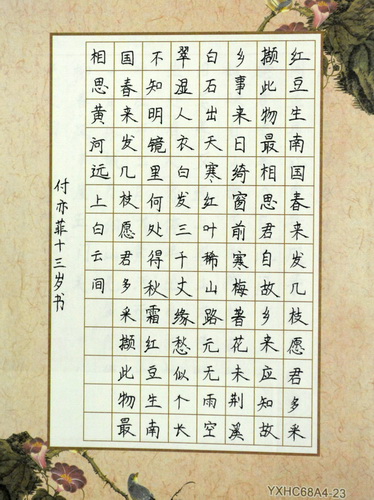 红豆生南国春来发几枝愿君多采
撷此物最相思君自故乡来应知故
乡事来日绮窗前寒梅著花未荆溪
白石出天寒红叶稀山路元无雨空
翠湿人衣白发三千丈缘愁似个长
不知明镜里何处得秋霜红豆生南
国春来发几枝愿君多采撷此物最
相思黄河远上白云间
付亦菲十三岁书
YXHC68A4-23